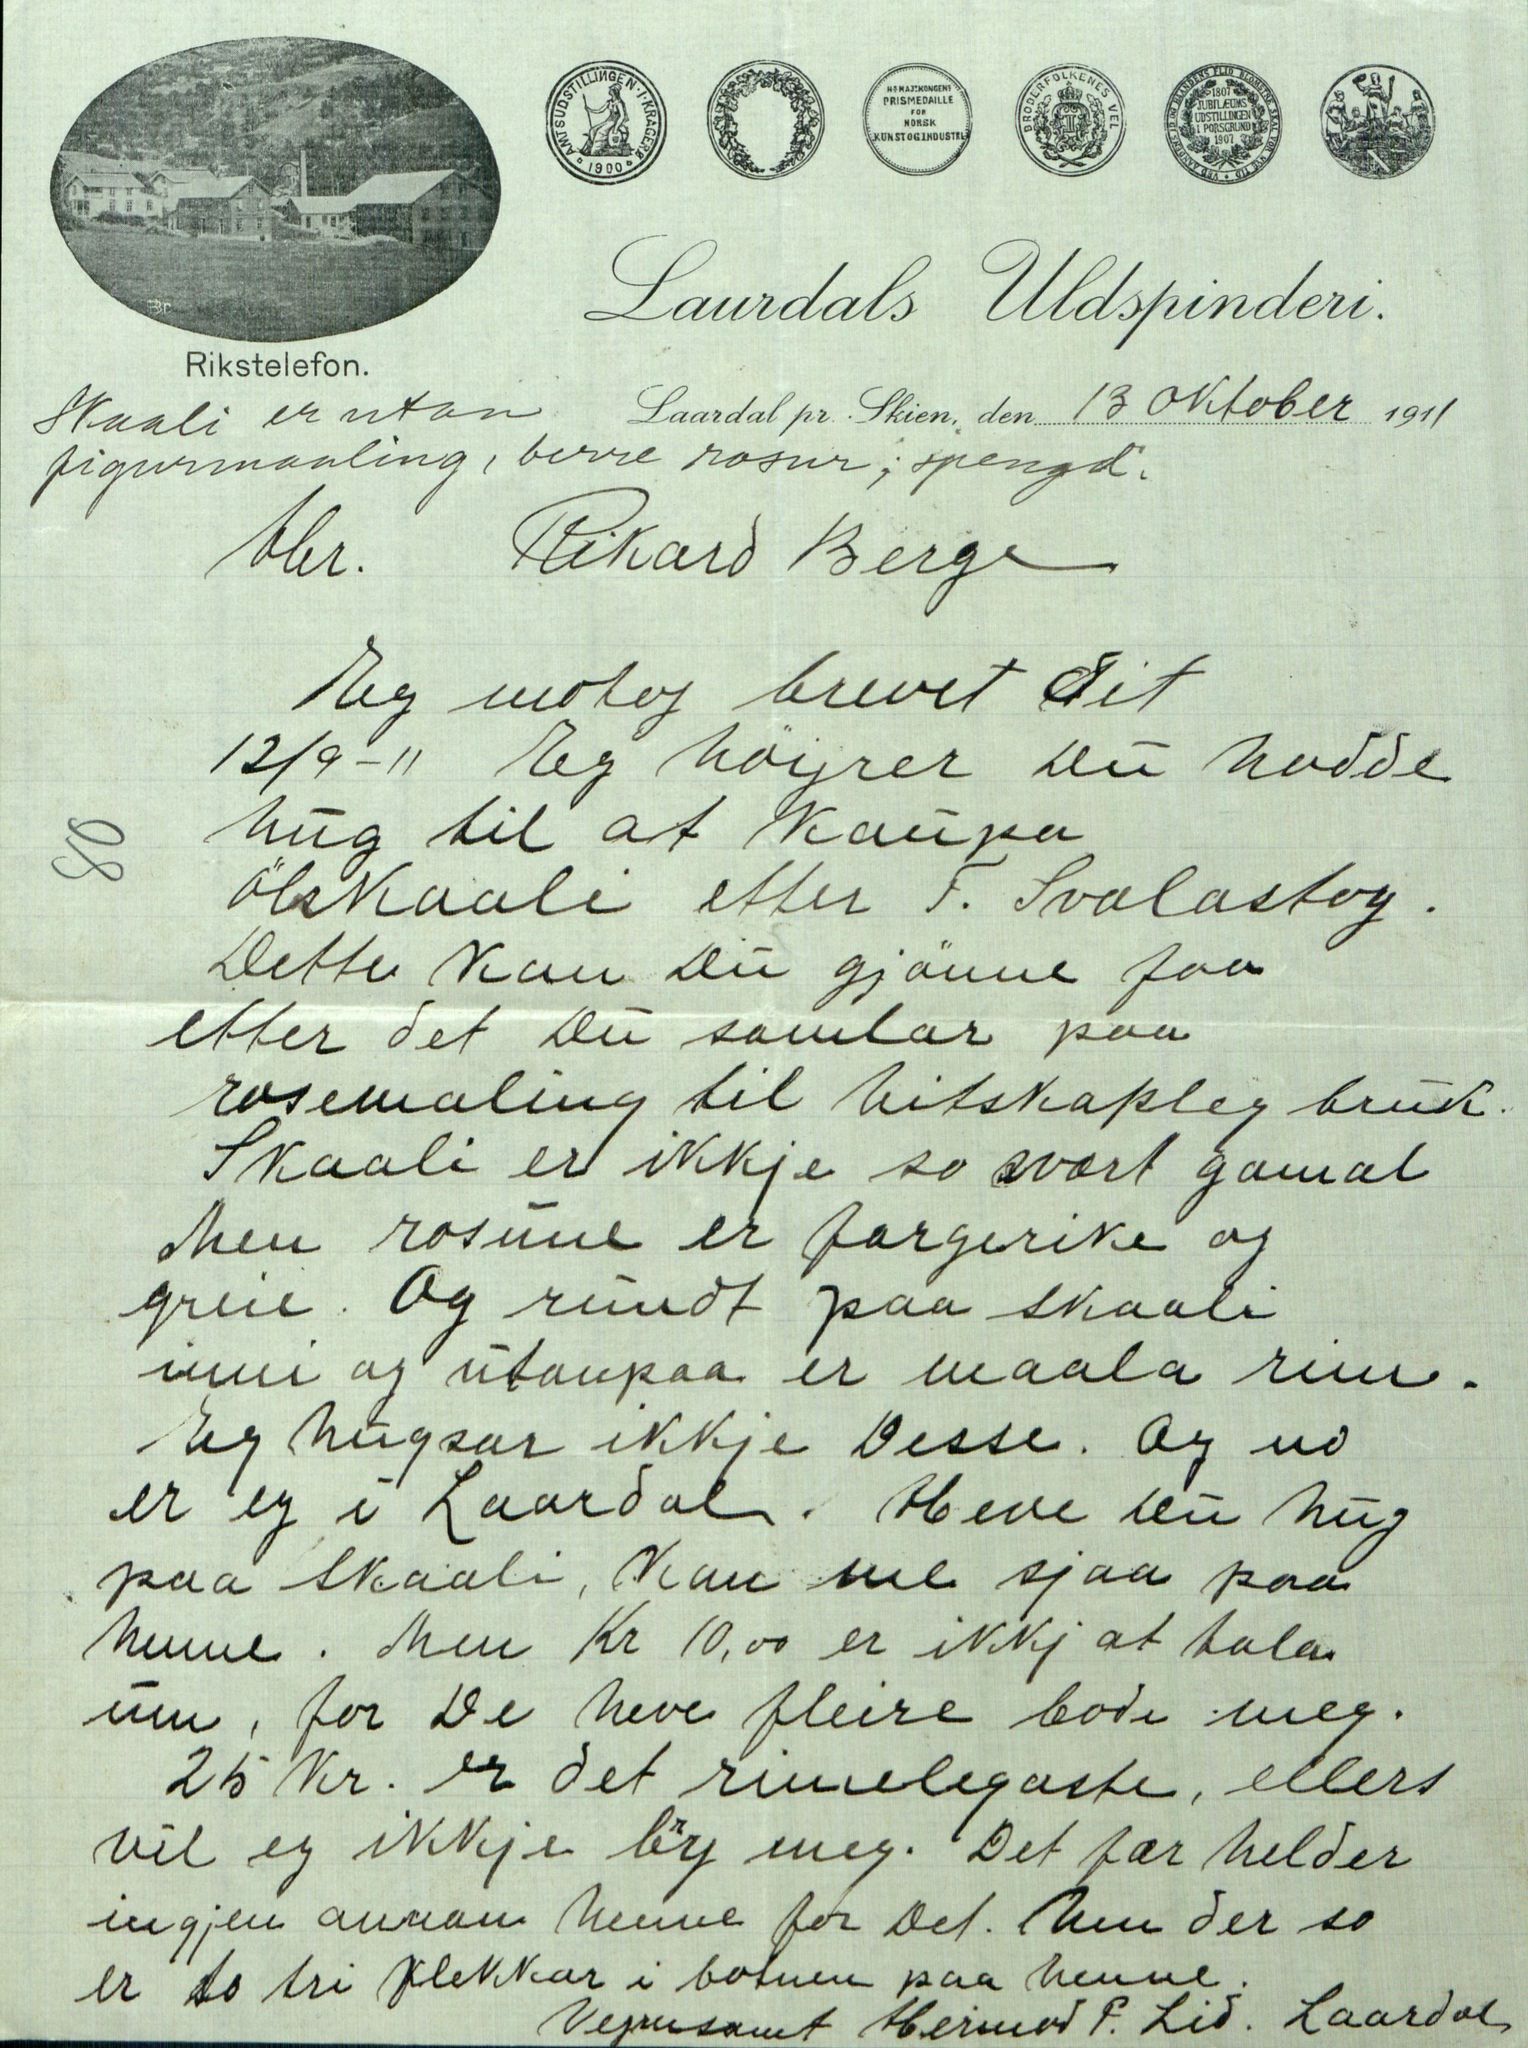 AMTSUDSTILLINGEN · I KRAGERØ
1900
HS MAJ: KONGENS
PRISMEDAILLE
FOR
NORSK
KUNST OG INDUSTRI
BRODERFOLKENES VEL
1807
JUBILÆUMS
UDSTILLINGEN
I PORSGRUND
1907
Laurdals Uldspinderi.
Rikstelefon.
Laardal pr. Skien, den 13 oktober 1911
Skaali er utan
figurmaaling, berre rosur; spengd.
Hr. Rikard Berge
80
Eg motog brevet dit
12/9-11 Eg höyrer Du hadde
hug til at kaupa
ölskaali etter F. Svalastog.
Dette kan Du gjönne faa
etter det Du samlar paa
rosemaling til vitskapleg bruk.
Skaali er ikkje so svært gamal
Men rosune er fargerike og
greie. Og rundt paa skaali
inni og utanpaa er maala rim.
Eg hugsar ikkje Desse. Og no
er eg i Laardal. Heve Du hug
paa skaali, kan me sjaa paa
henne. Men Kr 10,00 er ikkj at tala
um, for De heve fleire bode meg.
25 Kr. er det rimelegaste, ellers
vil eg ikkje bry meg. Det fær helder
ingjen annan henne for Det. Men der so
er to tri flekkar i botnen paa henne.
Vyrdsamt Hermod F. Lid. Laardal